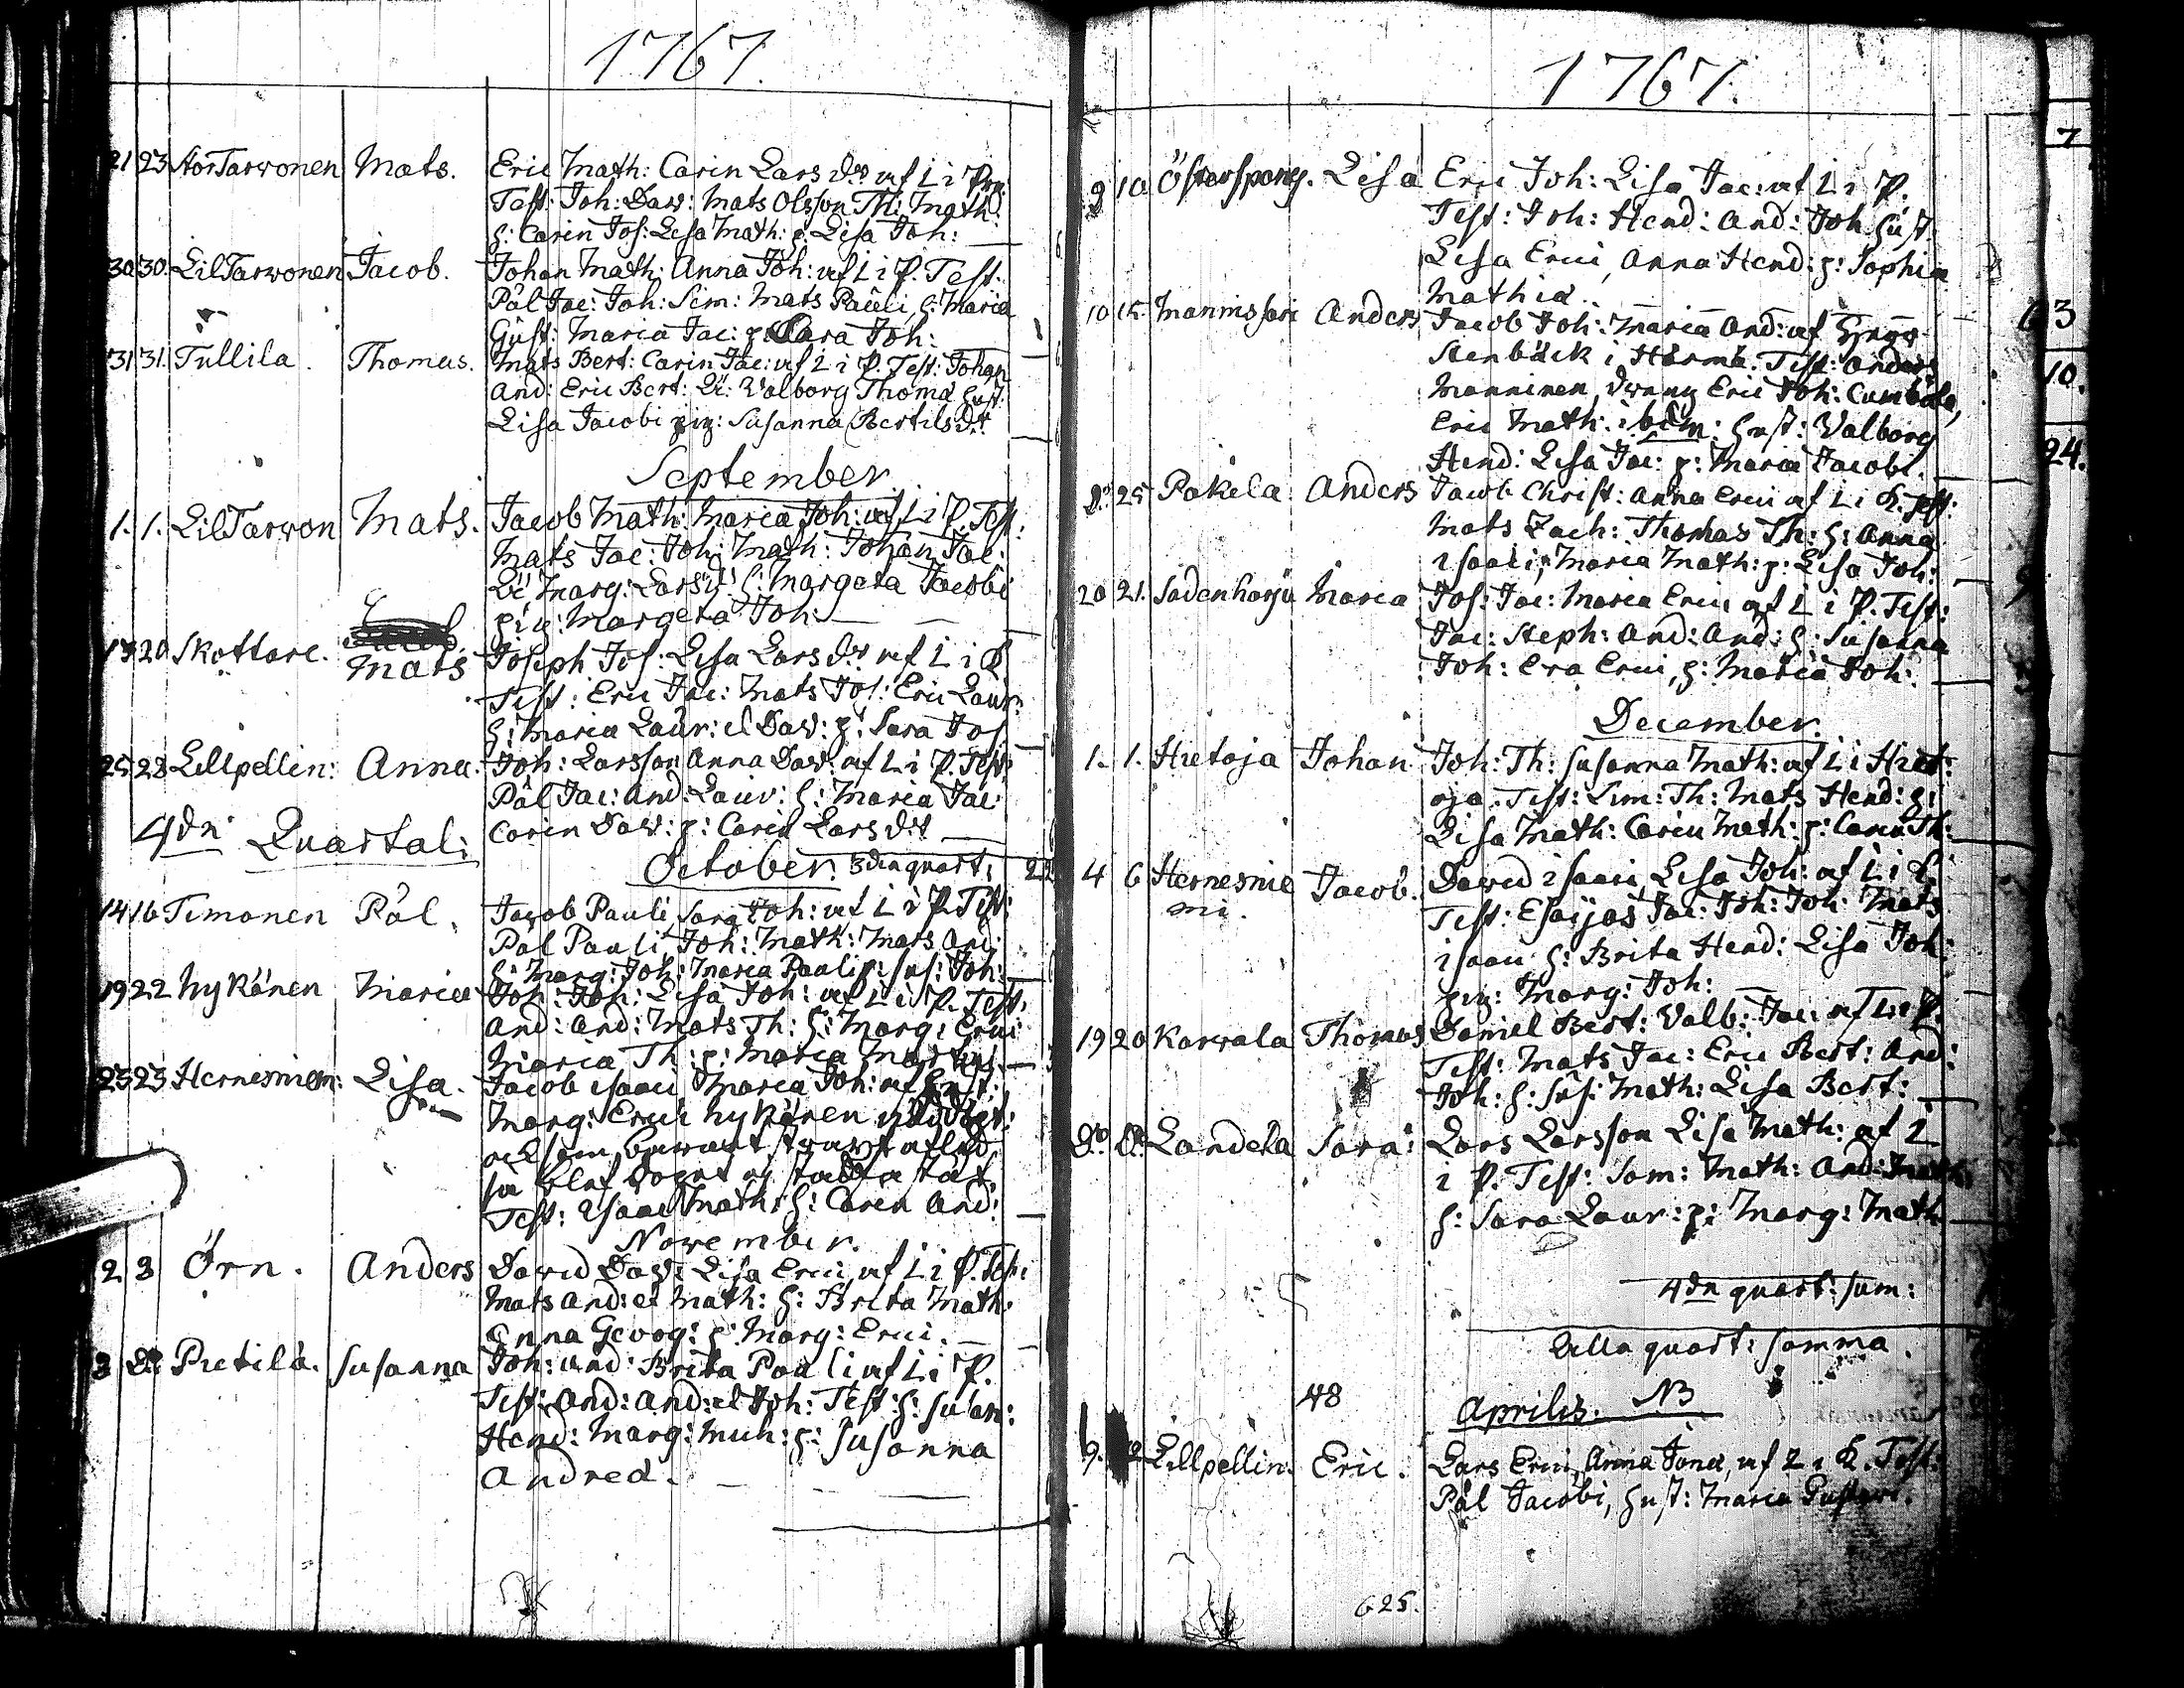 1767.
21 23 StorTarvonen Mats. Eric Math: Carin Lars dr af L i
Test: Joh: Daw: Mats Olsson Th: Math:
h: Carin Jos: Lisa Math: p: Lisa Joh:
30 30. LilTarvonen Jacob. Johan Math: Anna Joh: af L i P. Test:
Pål Jac: Joh: Sim: Mats Pauli h: Maria
Gust: Maria Jac: p: Sara Joh:
31 31. Tullila. Thomas. Mats Bert: Carin Jac: af L i P. Test: Johan
And: Eric Bert: Valborg Thomæ hust:
Lisa Jacobi pig: Susanna Bertils dr
September.
1. 1. LilTarvon Mats. Jacob Math: Maria Joh: af L i P. Test:
Mats Jac: Joh: Math: Johan Jac:
Marg: Lars dr h: Margeta Jacobi
pig: Margeta Joh:
13 20. Skottare. Mats Joseph Jos: Lisa Lars dr af L i
Test: Eric Jac: Mats Jos: Eric Laur:
h: Maria Laur: el Daw: p: Sara Jos
25 28 Lillpellin: Anna. Joh: Larsson Anna Daw: af L i P. Test:
Pål Jac: And: Laur: h: Maria Jac:
Carin Daw: p: Carin Lars dr
4dn Quartal:
October. 3dia quart: 22
14 16 Timonen Pål. Jacob Pauli Sara Joh: af L i P. Test:
Pål Pauli Joh: Math: Mats And:
h: Marg: Joh: Maria Pauli p: Sus: Joh:
19 22 Nykänen Maria Joh: Joh: Lisa Joh: af L i P. Test:
And: And: Mats Th: h: Marg: Erici
Maria Th: p: Maria
23 25 Hernesniem: Lisa. Jacob Isaaci Maria Joh: af hust:
Marg: Erici Nykänen
och som barnet straxt afled
så blef dopet
Test: Isaac Math: h: Carin And:
November.
2 3 Örn. Anders David Daw: Lisa Erici af L i P. Test:
Mats And: et Math: h: Brita Math:
Anna Georg: p: Marg: Erici.
3 Do Pietilä. Susanna Joh: And: Brita Pauli af L i P.
Test: And: And: et Joh: Test: h: Susan:
Hend: Marg: Mich: h: Susanna
Andreæ.
1767.
9 10 Österspong. Lisa Eric Joh: Lisa Jac: af L i P.
Test: Joh: Hend: And: Joh hust.
Lisa Erici, Anna Hend: p: Sophia
Mathiæ.
10 15. Mannissari Anders Jacob Joh: Maria And: af
Stenbäck i Härmä. Test: Anders
Manninen, dräng Eric Joh:
Eric Math: ibdm: hust: Valborg
Hend: Lisa Jac: p: Maria Jacobi.
Do 25 Pokela Anders Jacob Christ: Anna Erici af L i K. Test:
Mats Zach: Thomas Th: h: Anna
Isaaci, Maria Math: p: Lisa Joh:
20 21. Sadenharju Maria Jos: Jac: Maria Erici af L i P. Test:
Jac: Steph: And: And: h: Susanna
Joh: Eva Erici, h: Maria Joh:
December.
1. 1. Hietoja Johan Joh: Th: Susanna Math: af L i Hiet:
oja. Test: Sim: Th: Mats Hend: h:
Lisa Math: Carin Math: p: Carin Th:
4 6 Hernesnie Jacob. David Isaaci, Lisa Joh: af L i
mi. Test: Esaijas Jac: Joh: Joh: Mats
Isaaci h: Brita Hend: Lisa Joh:
pig: Marg: Joh:
19 20 Karvala Thomas Daniel Bert: Valb: Jac: af L i P.
Test: Mats Jac: Eric Bert: And:
Joh: h: Sus: Math: Lisa Bert:
Do Do Landela Sara: Lars Larsson Lisa Math: af L
i P. Test: Sam: Math: And: Math:
h: Sara Laur: p: Marg: Math
4dn quart: sum:
Alla quart: summa.
48
Aprilis. NB
9. 12 Lillpellin. Eric. Lars Erici, Anna Jonæ, af L i K. Test:
Pål Jacobi, hust: Maria
625.
7
3
10.
24.